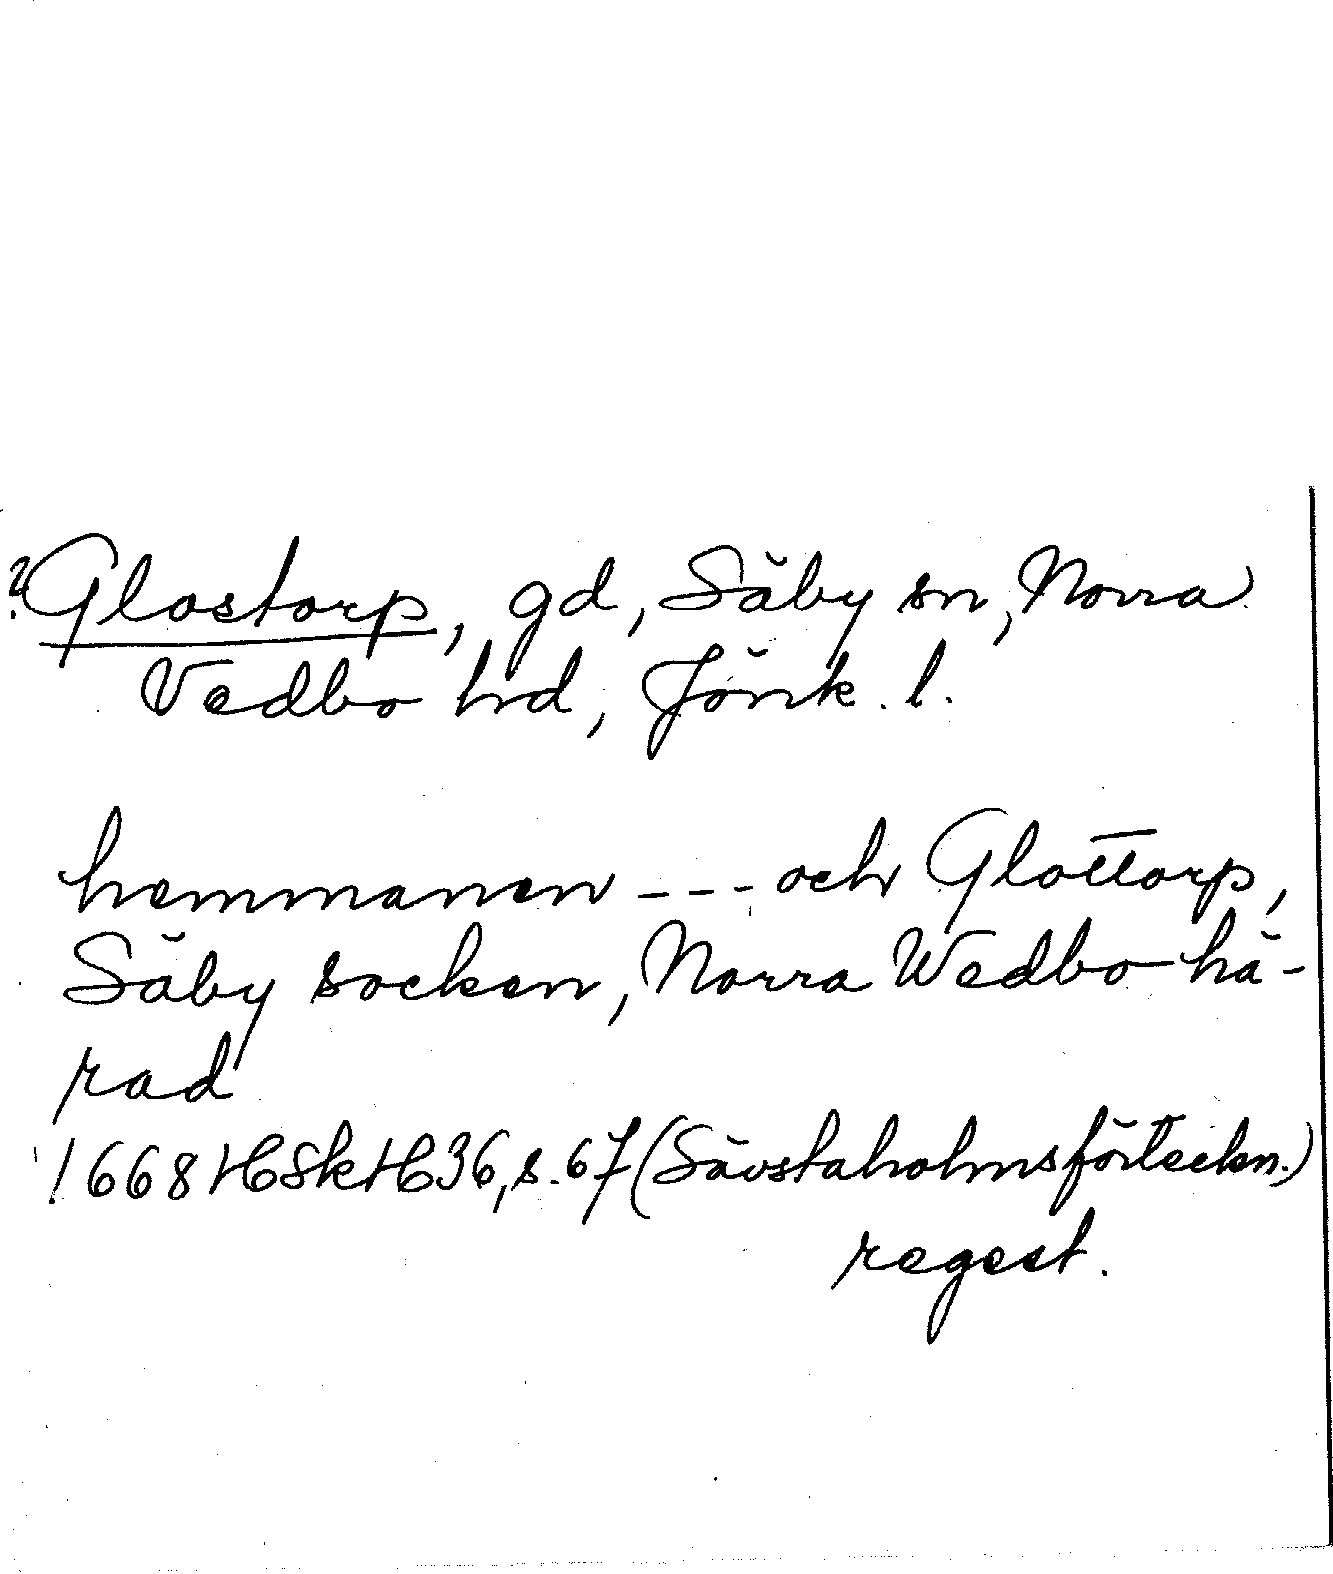 ? Glostorp, gd, Säby sn, Norra
Vedbo hd, Jönk. l.
hemmanen --- och Glottorp,
Säby socken, Norra Wedbo hä-
rad
1668 HSkH 36, s. 67 (Sävstaholmsförteckn.)
regest.